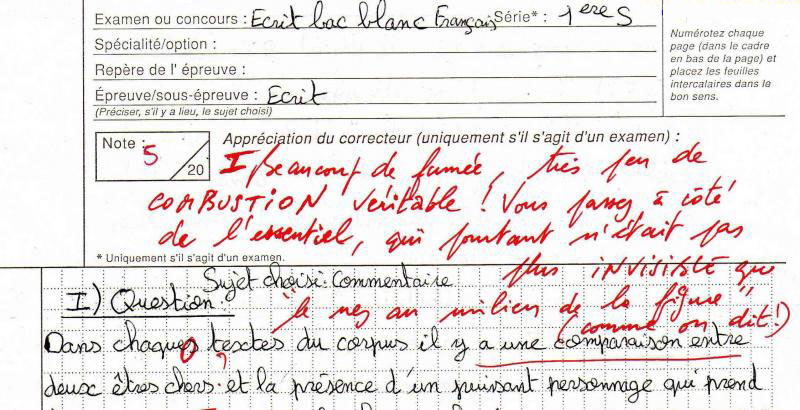 Examen ou concours : Ecrit bac blanc Français Série* : 1ères
Spécialité/option :
Repère de l' épreuve :
Épreuve/sous-épreuve : Ecrit
(Préciser, s'il y a lieu, le sujet choisi)
Numérotez chaque
page (dans le cadre
en bas de la page) et
placez les feuilles
intercalaires dans le
bon sens.
Note : 5 / 20
Appréciation du correcteur (uniquement s'il s'agit d'un examen) :
I Beaucoup de fumée, très peu de
COMBUSTION véritable ! Vous passez à côté
de l'essentiel, qui pourtant n'était pas
plus INVISIBLE que
"le nez au milieu de la figure"
(comme on dit !)
* Uniquement s'il s'agit d'un examen.
Sujet choisi : Commentaire
I) Question :
Dans chaques textes du corpus il y a une comparaison entre
deux êtres chers ? et la présence d'un puissant personnage qui prend